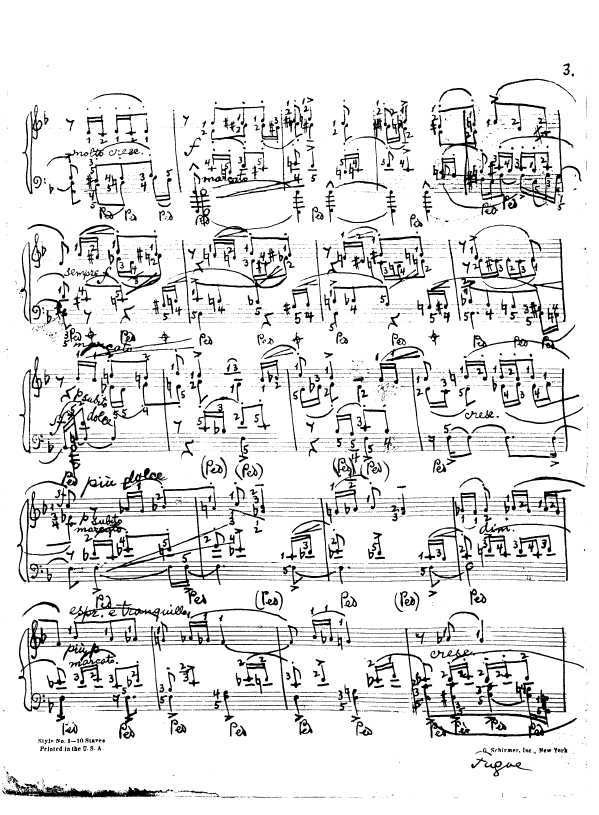 3.
molto cresc.
f
marcato
Ped Ped Ped Ped Ped Ped Ped
sempre f
Ped Ped Ped Ped Ped Ped
marcato
p subito
dolce
cresc.
Ped (Ped) (Ped) (Ped) (Ped) Ped
più dolce
p subito
marcato
dim.
Ped Ped (Ped) Ped (Ped) Ped
espr. e tranquillo
più p
marcato
cresc.
Ped Ped Ped Ped Ped Ped Ped Ped Ped
Style No. 1—10 Staves
Printed in the U. S. A
G. Schirmer, Inc., New York
Fugue